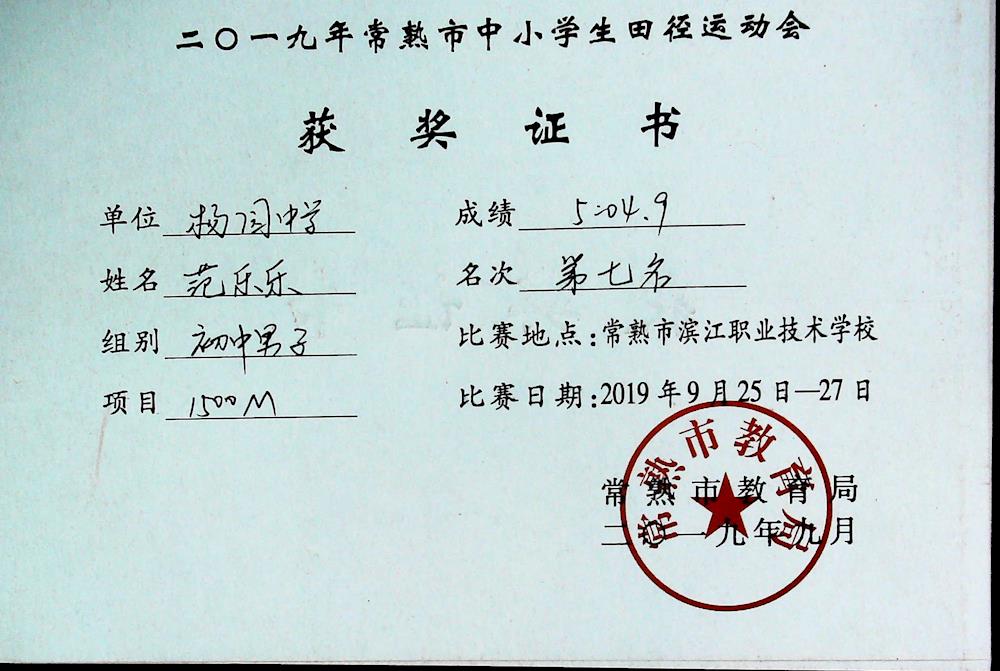 二〇一九年常熟市中小学生田径运动会
获奖证书
单位 杨园中学
成绩 5:04.9
姓名 范乐乐
名次 第七名
组别 初中男子
比赛地点:常熟市滨江职业技术学校
项目 1500M
比赛日期:2019年9月25日—27日
常熟市教育局
常熟市教育局
二〇一九年九月